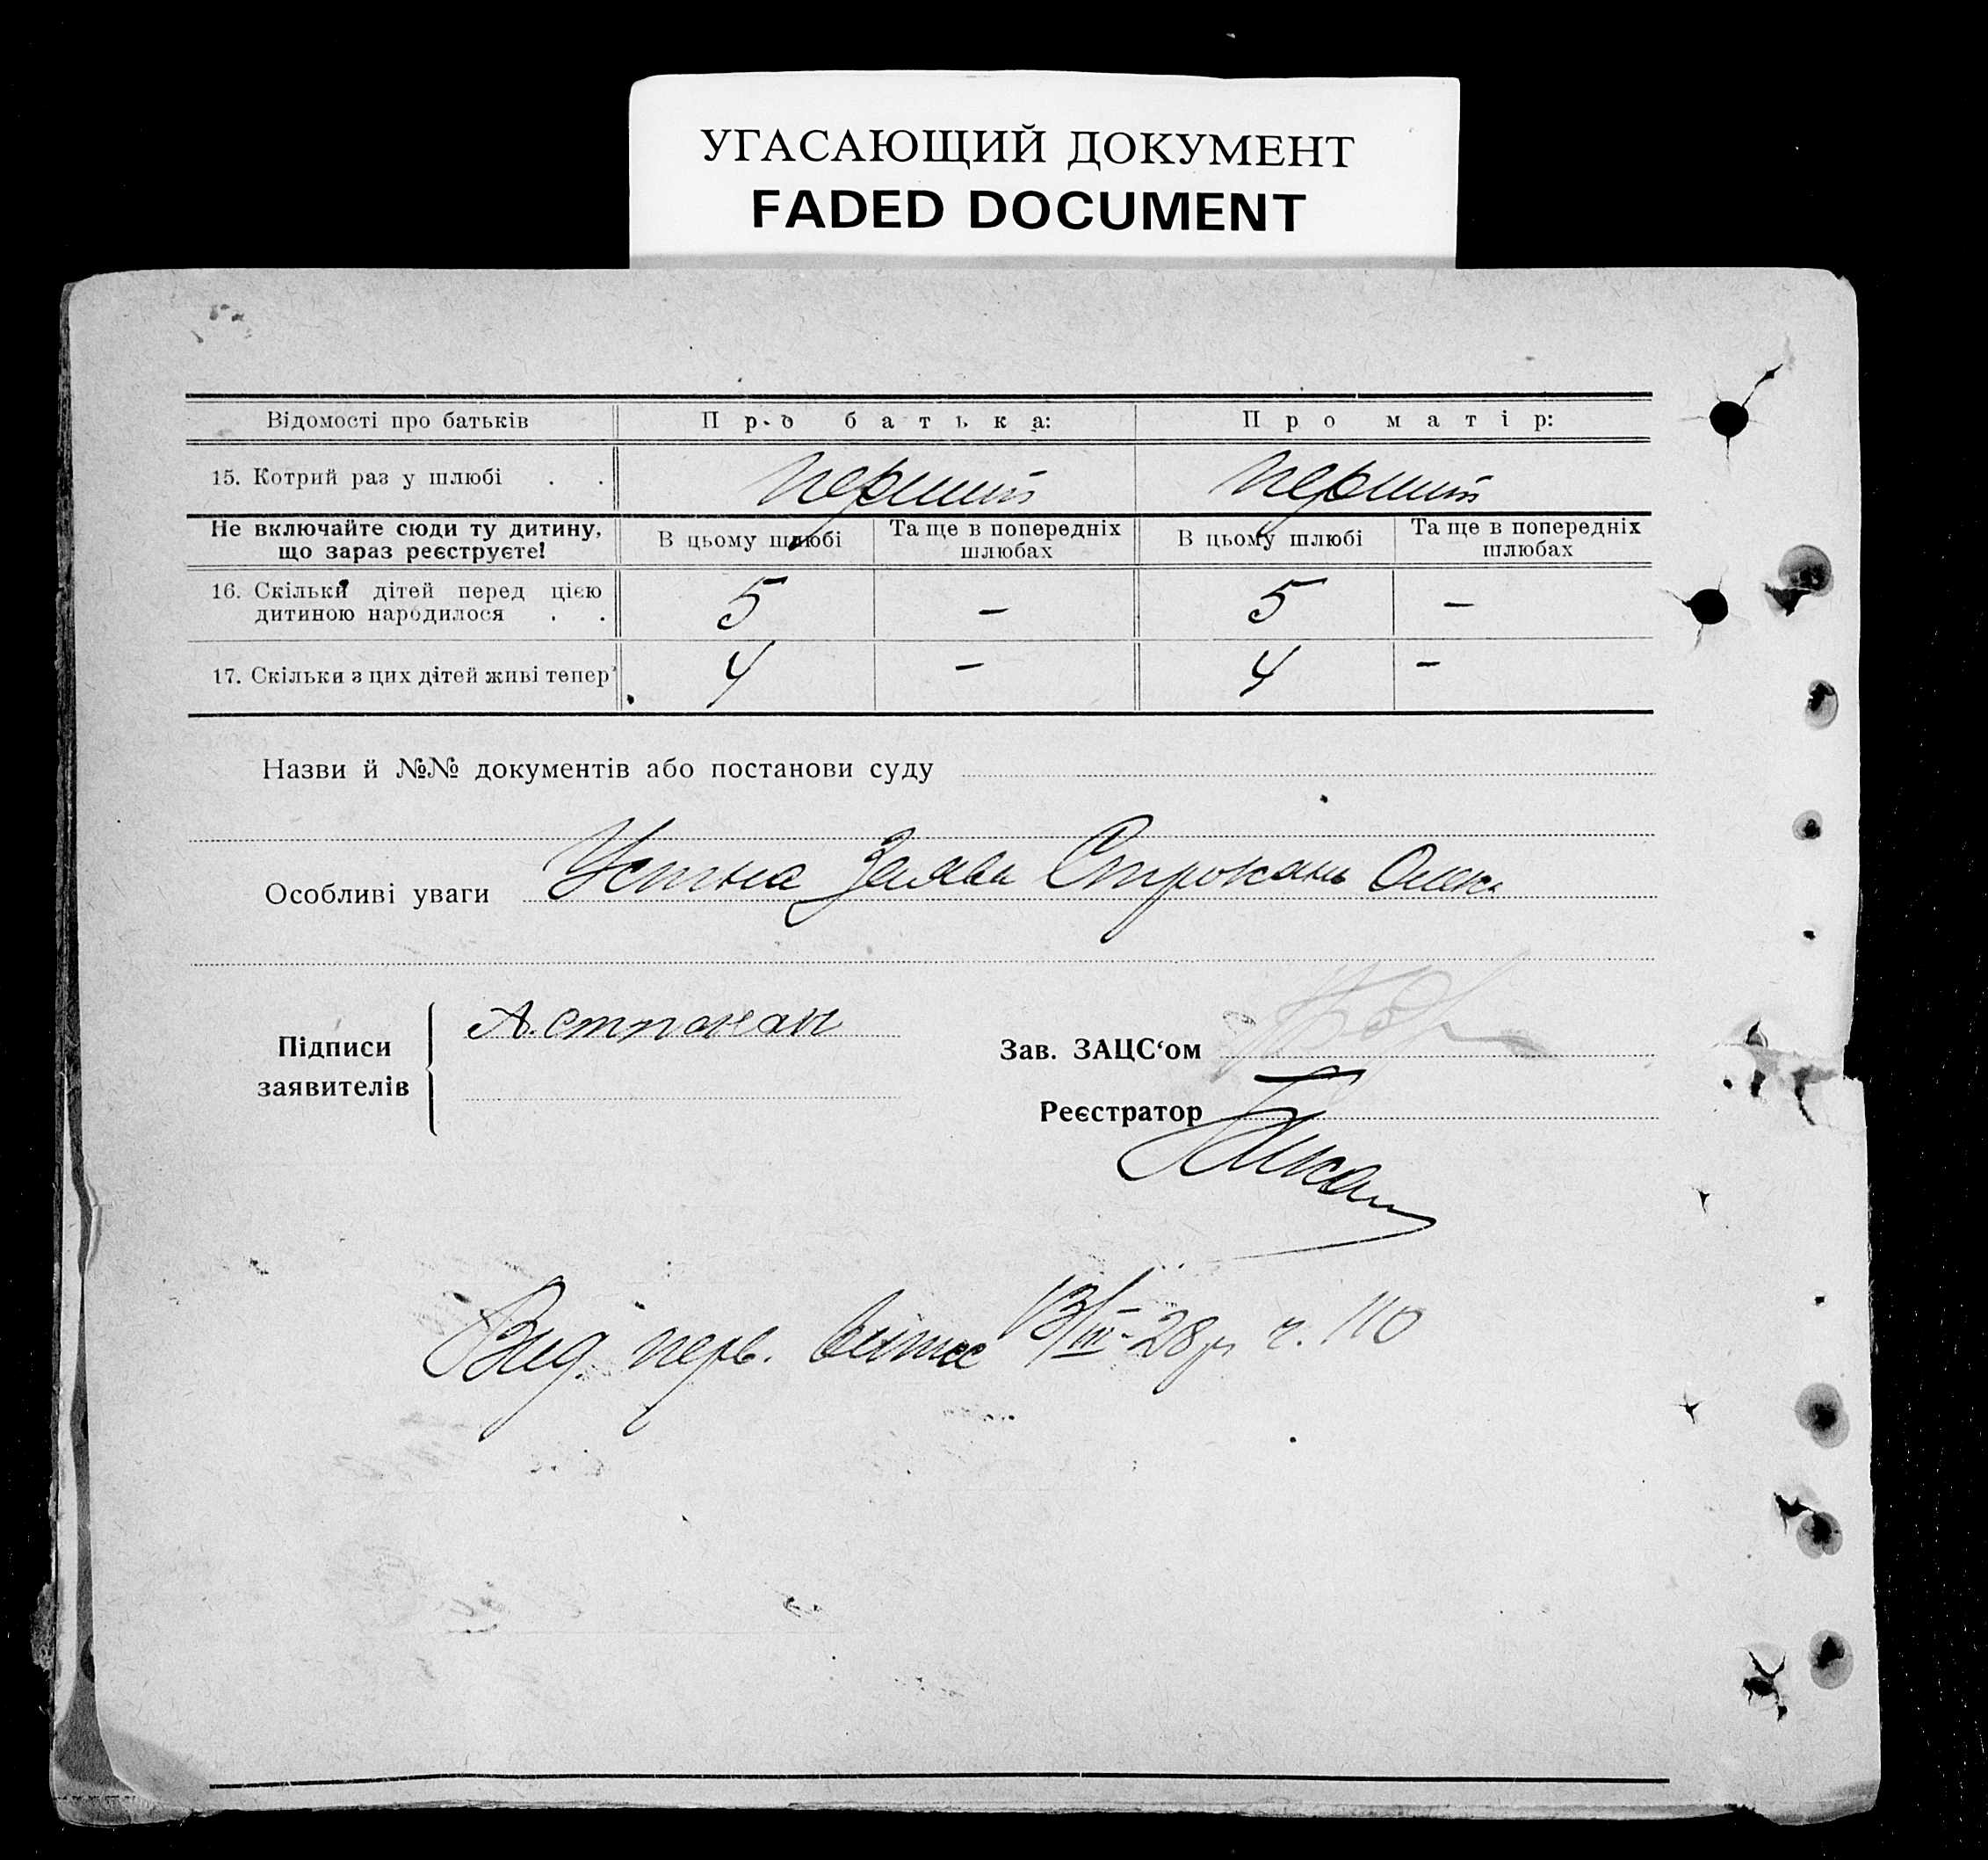 УГАСАЮЩИЙ ДОКУМЕНТ
FADED DOCUMENT
Відомості про батьків Про батька: Про матір:
15. Котрий раз у шлюбі . . перший перший
Не включайте сюди ту дитину, що зараз реєструєте! В цьому шлюбі Та ще в попередніх шлюбах В цьому шлюбі Та ще в попередніх шлюбах
16. Скільки дітей перед цією
дитиною народилося . . 5 – 5 –
17. Скільки з цих дітей живі тепер 4 – 4 –
Назви й №№ документів або постанови суду
Особливі уваги Устна Заява Строкань
Підписи заявителів А. Строкань
Зав. ЗАЦС‘ом
Реєстратор
Вид. перв. 13/III-28 р. ч. 110